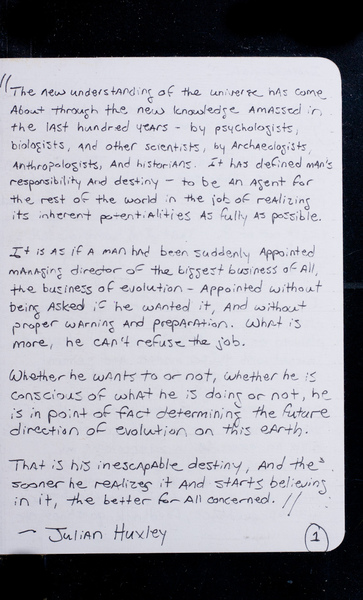 "The new understanding of the universe has come
About through the new knowledge amassed in
the last hundred years - by psychologists,
biologists, and other scientists, by Archaeologists,
Anthropologists, and historians. It has defined man's
responsibility and destiny - to be an agent for
the rest of the world in the job of realizing
its inherent potentialities as fully as possible.
It is as if a man had been suddenly appointed
managing director of the biggest business of all,
the business of evolution - appointed without
being asked if he wanted it, and without
proper warning and preparation. What is
more, he can't refuse the job.
Whether he wants to or not, whether he is
conscious of what he is doing or not, he
is in point of fact determining the future
direction of evolution on this earth.
That is his inescapable destiny, and the
sooner he realizes it and starts believing
in it, the better for all concerned. "
- Julian Huxley
1